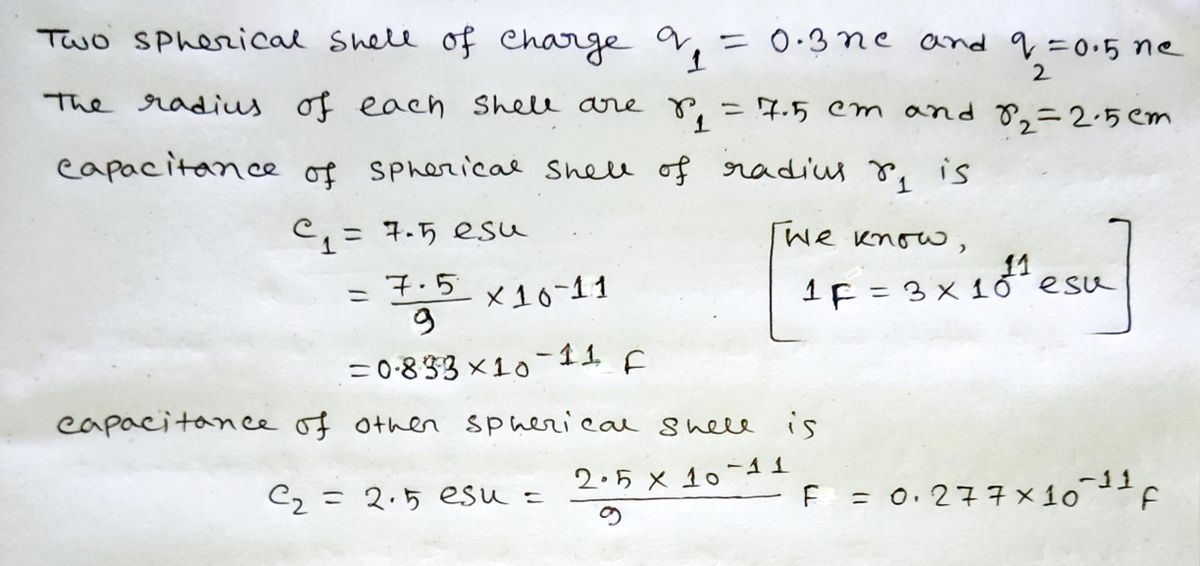 Two spherical shell of charge q₁ = 0.3 nc and q₂ = 0.5 nc
The radius of each shell are r₁ = 7.5 cm and r₂ = 2.5 cm
capacitance of spherical shell of radius r₁ is
C₁ = 7.5 esu [We know,
= 7.5/9 × 10⁻¹¹ 1 F = 3 × 10¹¹ esu]
= 0.833 × 10⁻¹¹ F
capacitance of other spherical shell is
C₂ = 2.5 esu = 2.5 × 10⁻¹¹/9 F = 0.277 × 10⁻¹¹ F